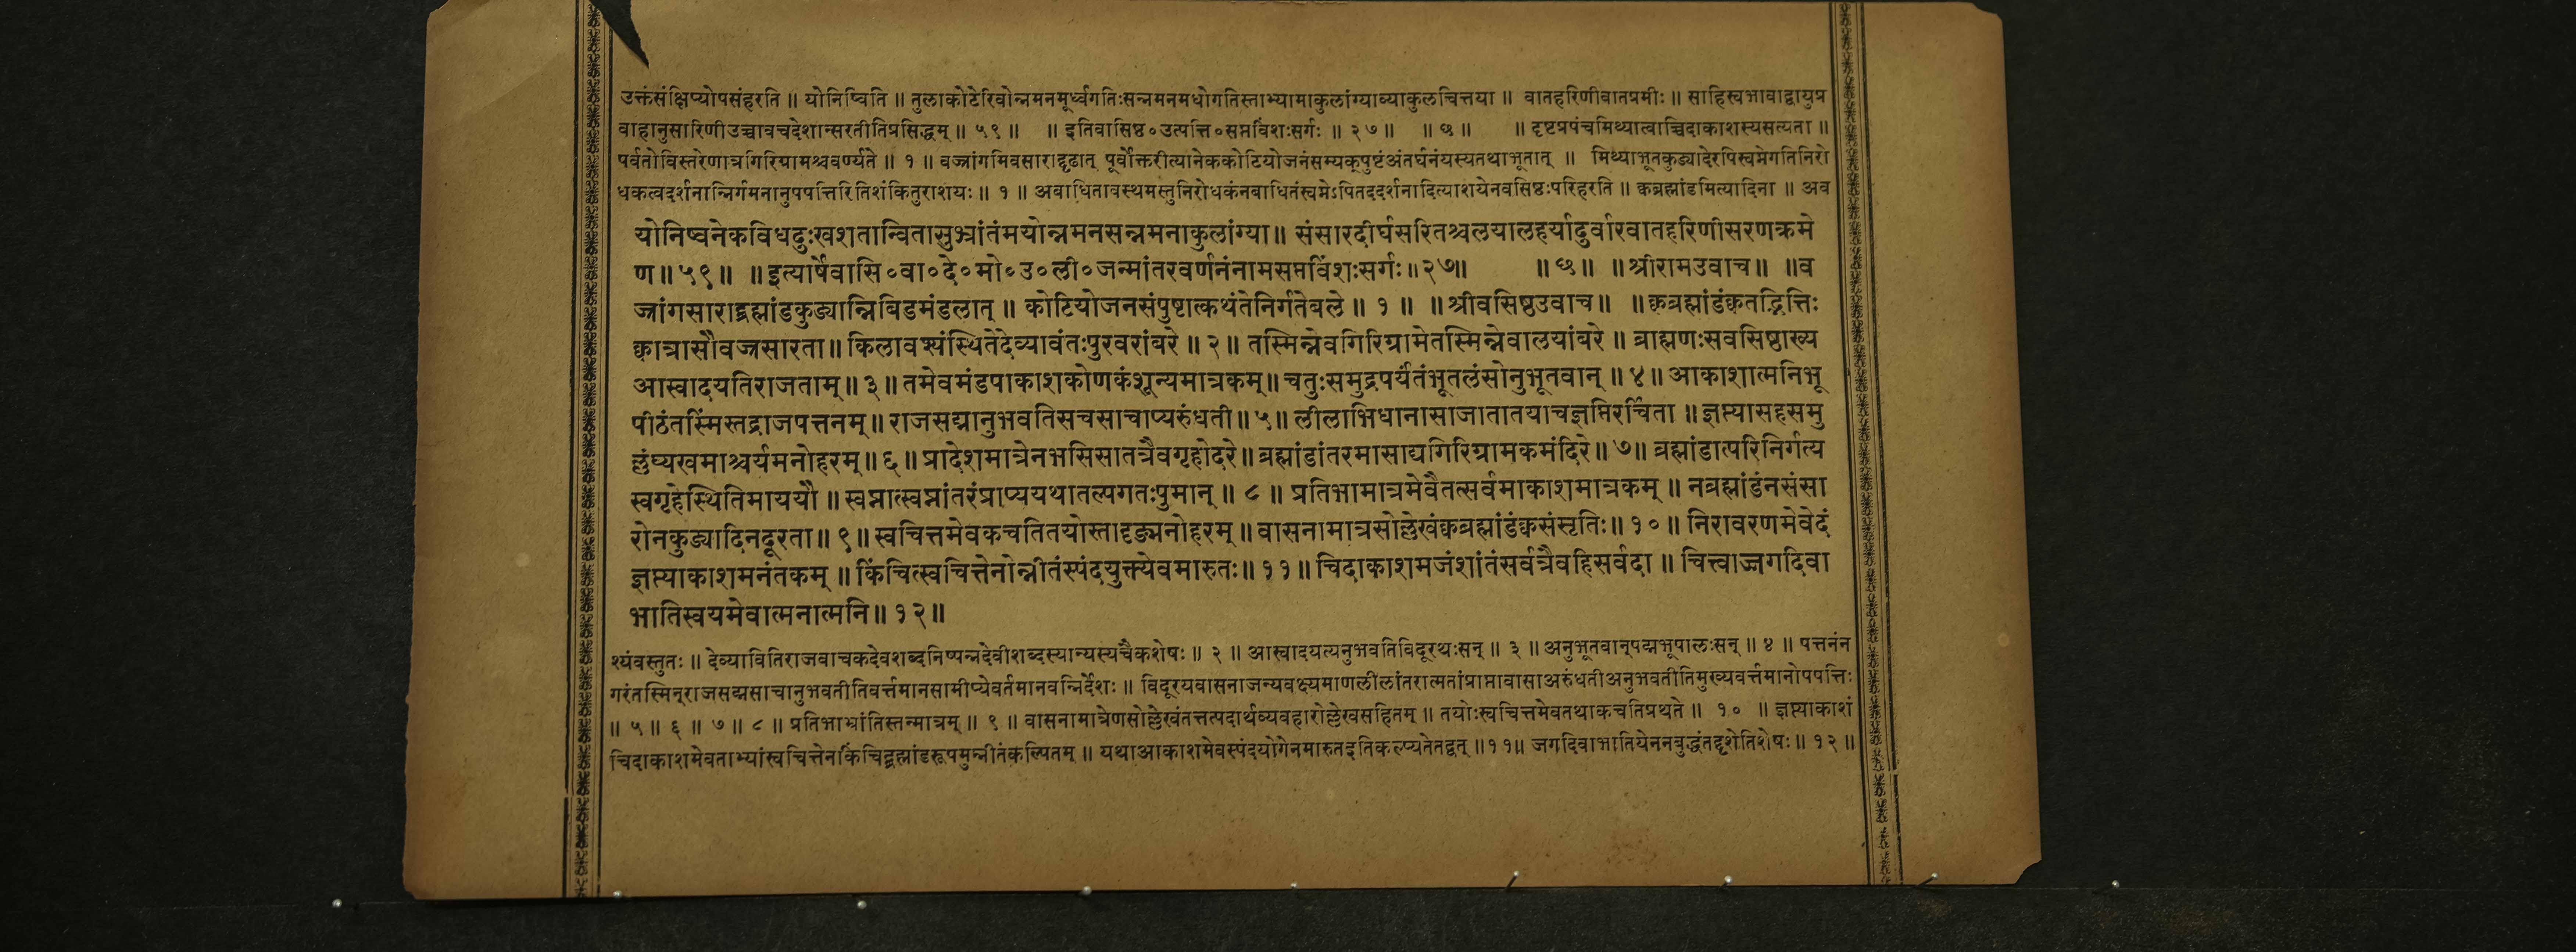 उक्तंसंक्षिप्योपसंहरति ॥ योनिष्विति ॥ तुलाकोटेरिवोन्नमनमूर्ध्वगतिःसन्नमनमधोगतिस्ताभ्यामाकुलांग्याव्याकुलचित्तया ॥ वातहरिणीवातप्रमीः ॥ साहिस्वभावाद्वायुप्र
वाहानुसारिणीउच्चावचदेशान्सरतीतिप्रसिद्धम् ॥ ५९ ॥ ॥ इतिवासिष्ठ॰उत्पत्ति॰सप्तविंशःसर्गः ॥ २७ ॥ ॥ छ ॥ ॥ दृष्टप्रपंचमिथ्यात्वाच्चिदाकाशस्यसत्यता ॥
पर्वतोविस्तरेणात्रगिरिग्रामश्चवर्ण्यते ॥ १ ॥ वज्रांगमिवसाराद्दृढात् पूर्वोक्तरीत्यानेककोटियोजनंसम्यक्पुष्टंअंतर्घनंयस्यतथाभूतात् ॥ मिथ्याभूतकुड्यादेरपिस्वप्नेगतिनिरो
धकत्वदर्शनान्निर्गमनानुपपत्तिरितिशंकितुराशयः ॥ १ ॥ अबाधितावस्थमस्तुनिरोधकंनबाधितंस्वप्नेऽपितददर्शनादित्याशयेनवसिष्ठःपरिहरति ॥ क्वब्रह्मांडमित्यादिना ॥ अव
योनिष्वनेकविधदुःखशतान्वितासुभ्रांतंमयोन्नमनसन्नमनाकुलांग्या ॥ संसारदीर्घसरितश्चलयालहर्यादुर्वारवातहरिणीसरणक्रमे
ण ॥ ५९ ॥ ॥ इत्यार्षेवासि॰वा॰दे॰मो॰उ॰ली॰जन्मांतरवर्णनंनामसप्तविंशःसर्गः ॥ २७ ॥ ॥ छ ॥ ॥ श्रीरामउवाच ॥ ॥ व
ज्रांगसाराद्ब्रह्मांडकुड्यान्निबिडमंडलात् ॥ कोटियोजनसंपुष्टात्कथंतेनिर्गतेबले ॥ १ ॥ ॥ श्रीवसिष्ठउवाच ॥ ॥ क्वब्रह्मांडंक्वतद्भित्तिः
क्वात्रासौवज्रसारता ॥ किलावश्यंस्थितेदेव्यावंतःपुरवरांबरे ॥ २ ॥ तस्मिन्नेवगिरिग्रामेतस्मिन्नेवालयांबरे ॥ ब्राह्मणःसवसिष्ठाख्य
आस्वादयतिराजताम् ॥ ३ ॥ तमेवमंडपाकाशकोणकंशून्यमात्रकम् ॥ चतुःसमुद्रपर्यंतंभूतलंसोनुभूतवान् ॥ ४ ॥ आकाशात्मनिभू
पीठंतस्मिंस्तद्राजपत्तनम् ॥ राजसद्मानुभवतिसचसाचाप्यरुंधती ॥ ५ ॥ लीलाभिधानासाजातातयाचज्ञप्तिरर्चिता ॥ ज्ञप्त्यासहसमु
ल्लंघ्यखमाश्चर्यमनोहरम् ॥ ६ ॥ प्रादेशमात्रेनभसिसातत्रैवगृहोदरे ॥ ब्रह्मांडांतरमासाद्यगिरिग्रामकमंदिरे ॥ ७ ॥ ब्रह्मांडात्परिनिर्गत्य
स्वगृहेस्थितिमाययौ ॥ स्वप्नात्स्वप्नांतरंप्राप्ययथातल्पगतःपुमान् ॥ ८ ॥ प्रतिभामात्रमेवैतत्सर्वमाकाशमात्रकम् ॥ नब्रह्मांडंनसंसा
रोनकुड्यादिनदूरता ॥ ९ ॥ स्वचित्तमेवकचतितयोस्तादृङ्मनोहरम् ॥ वासनामात्रसोल्लेखंक्वब्रह्मांडंक्वसंसृतिः ॥ १० ॥ निरावरणमेवेदं
ज्ञप्त्याकाशमनंतकम् ॥ किंचित्स्वचित्तेनोन्नीतंस्पंदयुक्त्येवमारुतः ॥ ११ ॥ चिदाकाशमजंशांतंसर्वत्रैवहिसर्वदा ॥ चित्त्वाज्जगदिवा
भातिस्वयमेवात्मनात्मनि ॥ १२ ॥
श्यंवस्तुतः ॥ देव्यावितिराजवाचकदेवशब्दनिष्पन्नदेवीशब्दस्यान्यस्यचैकशेषः ॥ २ ॥ आस्वादयत्यनुभवतिविदूरथःसन् ॥ ३ ॥ अनुभूतवान्पद्मभूपालःसन् ॥ ४ ॥ पत्तनंन
गरंतस्मिन्राजसद्मसाचानुभवतीतिवर्त्तमानसामीप्येवर्तमानवन्निर्देशः ॥ विदूरथवासनाजन्यवक्ष्यमाणलीलांतरात्मतांप्राप्तावासाअरुंधतीअनुभवतीतिमुख्यवर्त्तमानोपपत्तिः
॥ ५ ॥ ६ ॥ ७ ॥ ८ ॥ प्रतिभाभ्रांतिस्तन्मात्रम् ॥ ९ ॥ वासनामात्रेणसोल्लेखंतत्तत्पदार्थव्यवहारोल्लेखसहितम् ॥ तयोःस्वचित्तमेवतथाकचतिप्रथते ॥ १० ॥ ज्ञप्त्याकाशं
चिदाकाशमेवताभ्यांस्वचित्तेनकिंचिद्ब्रह्मांडरूपमुन्नीतंकल्पितम् ॥ यथाआकाशमेवस्पंदयोगेनमारुतइतिकल्प्यतेतद्वत् ॥ ११ ॥ जगदिवाभातियेननबुद्धंतद्दृशेतिशेषः ॥ १२ ॥